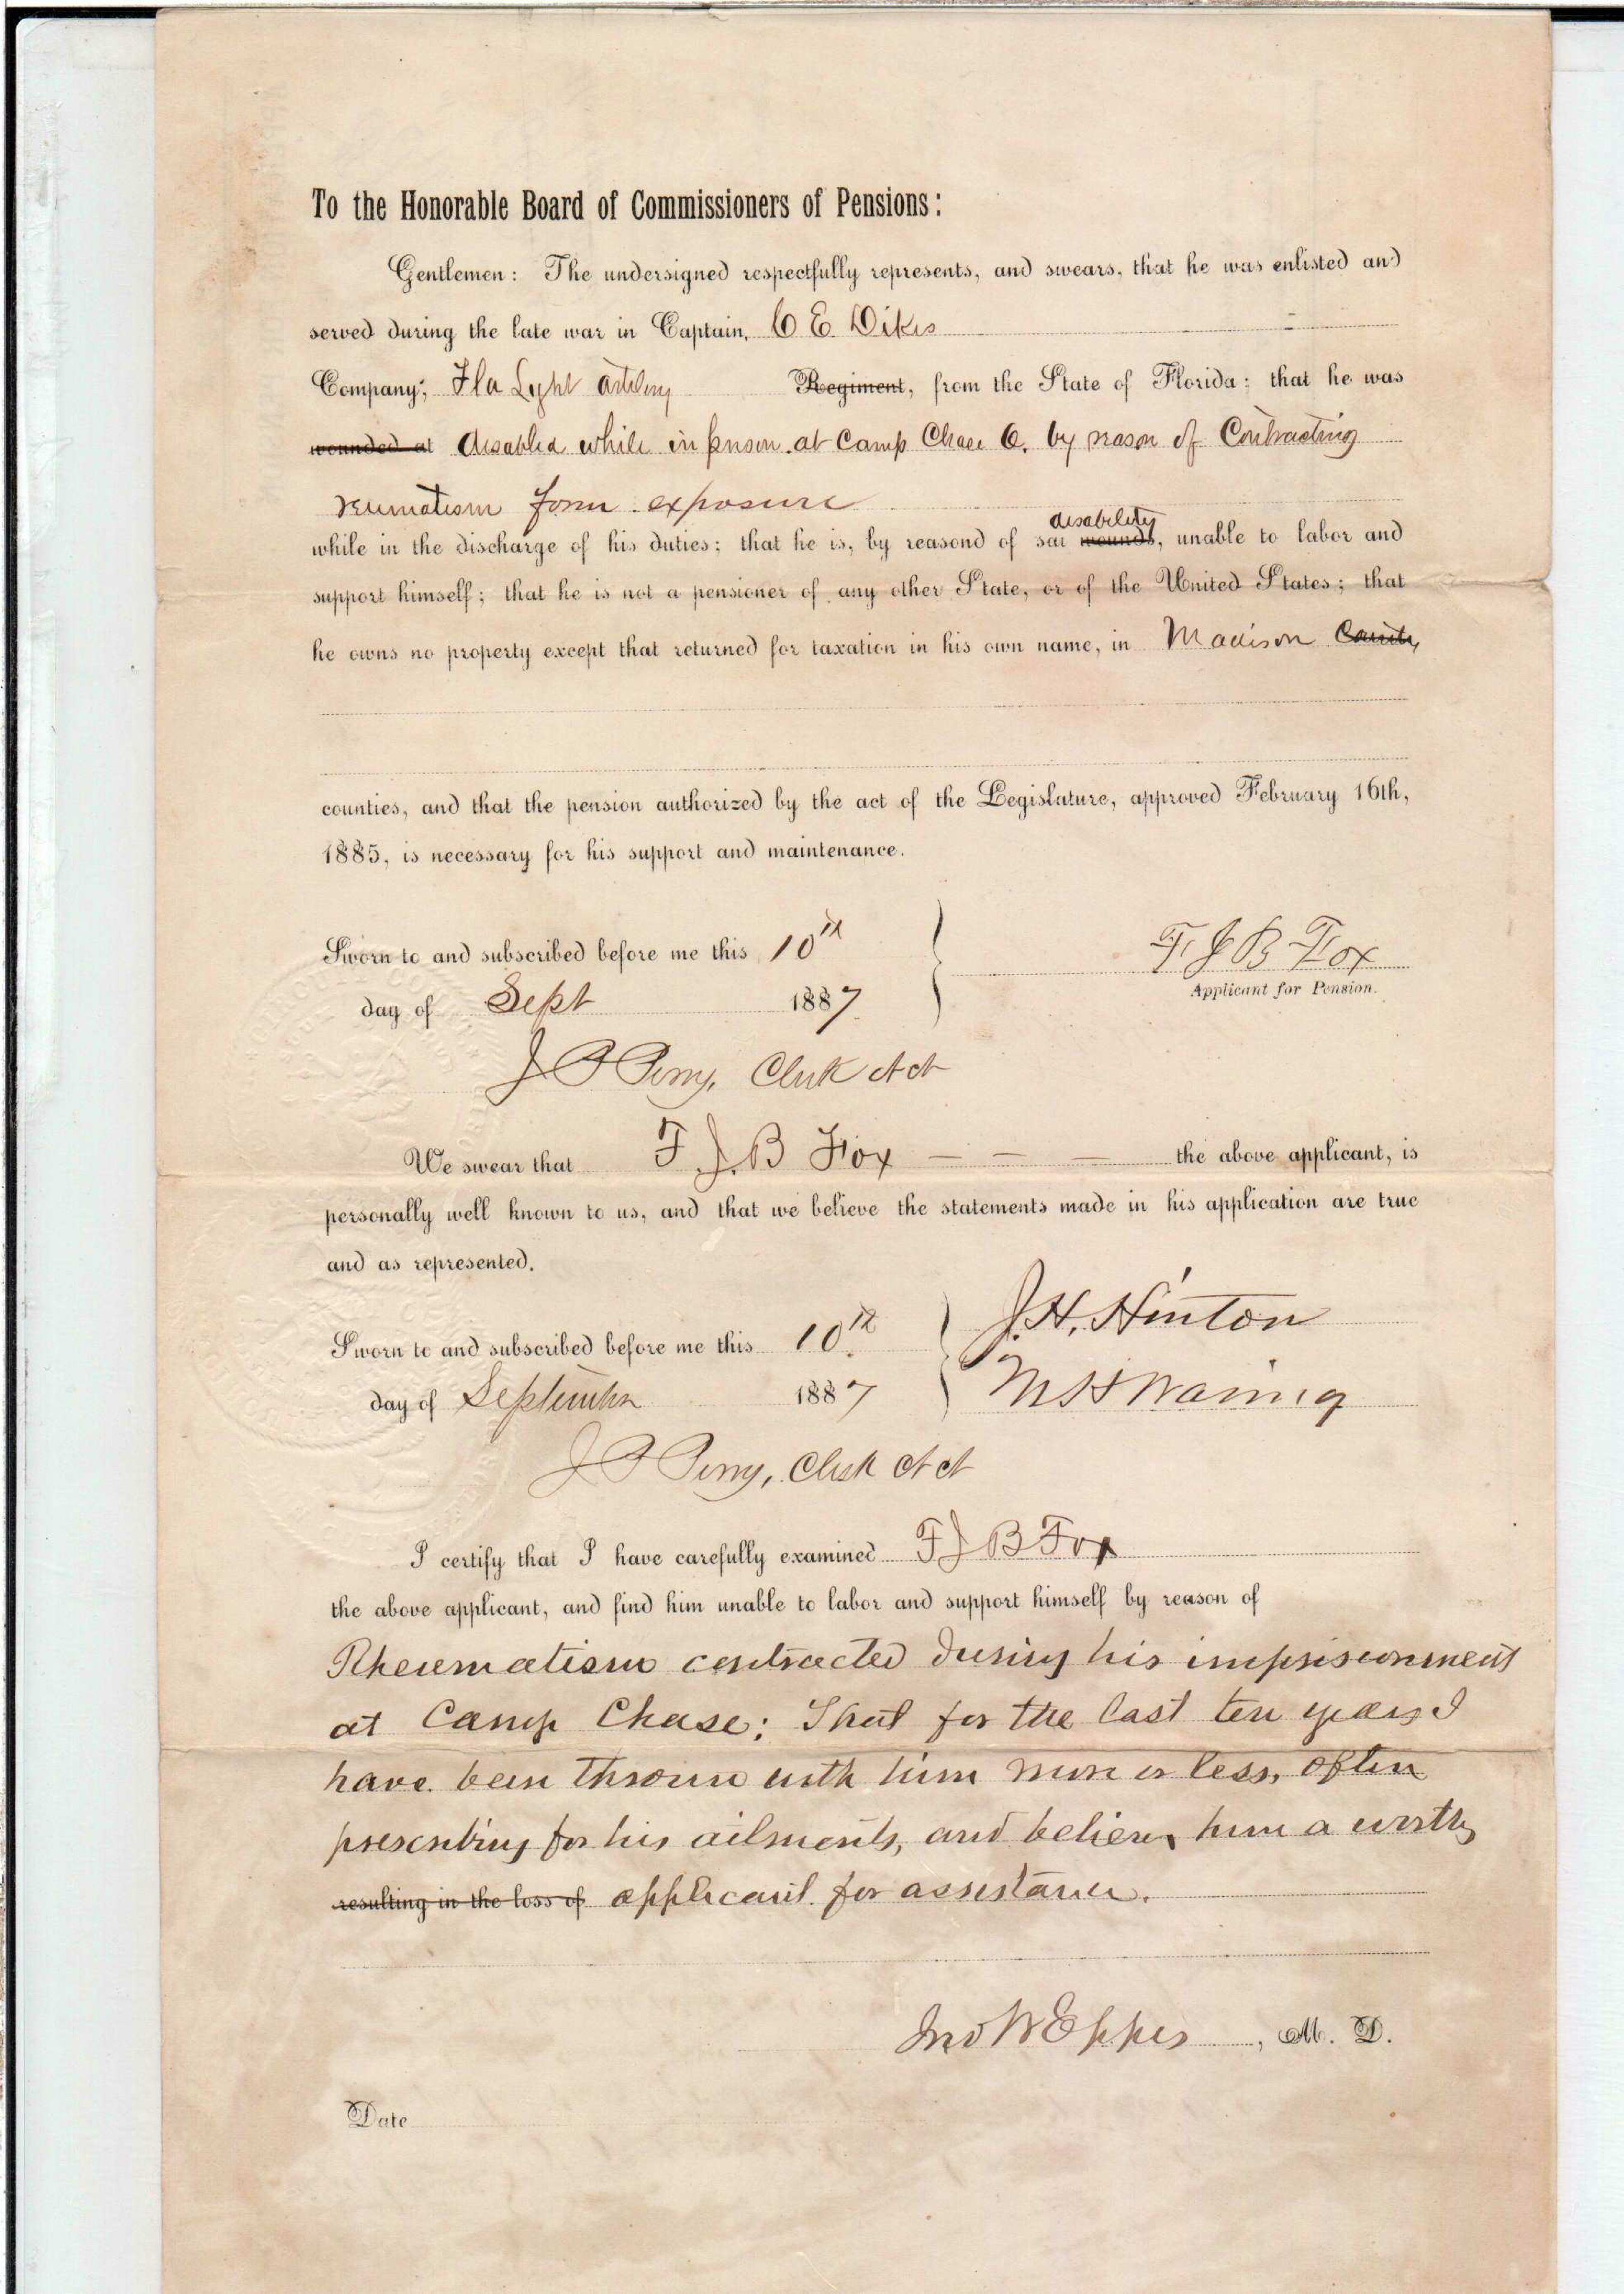 To the Honorable Board of Commissioners of Pensions:
Gentlemen: The undersigned respectfully represents, and swears, that he was enlisted and
served during the late war in Captain, C E Dikes
Company; Fla Light artilery Regiment, from the State of Florida; that he was
wounded at disabled while in prison at Camp Chace O. by reason of Contracting
reumatism form exposure
disability
while in the discharge of his duties; that he is, by reasond of sai wounds, unable to labor and
support himself; that he is not a pensioner of any other State, or of the United States; that
he owns no property except that returned for taxation in his own name, in Madison County
counties, and that the pension authorized by the act of the Legislature, approved February 16th,
1885, is necessary for his support and maintenance.
Sworn to and subscribed before me this 10th
F J B Fox
Applicant for Pension.
day of Sept 1887
J P Perry, Clerk
We swear that F J B Fox — — — the above applicant, is
personally well known to us, and that we believe the statements made in his application are true
and as represented.
J. H. Hinton
Sworn to and subscribed before me this 10th
day of September 1887 M H Waring
J P Perry, Clerk
I certify that I have carefully examined F J B Fox
the above applicant, and find him unable to labor and support himself by reason of
Rheumatism contracted during his imprisonment
at Camp Chase; That for the last ten years I
have been thrown with him more or less, often
prescribing for his ailments, and believe him a worthy
resulting in the loss of applicant for assistance.
Jno W Eppes, M. D.
Date